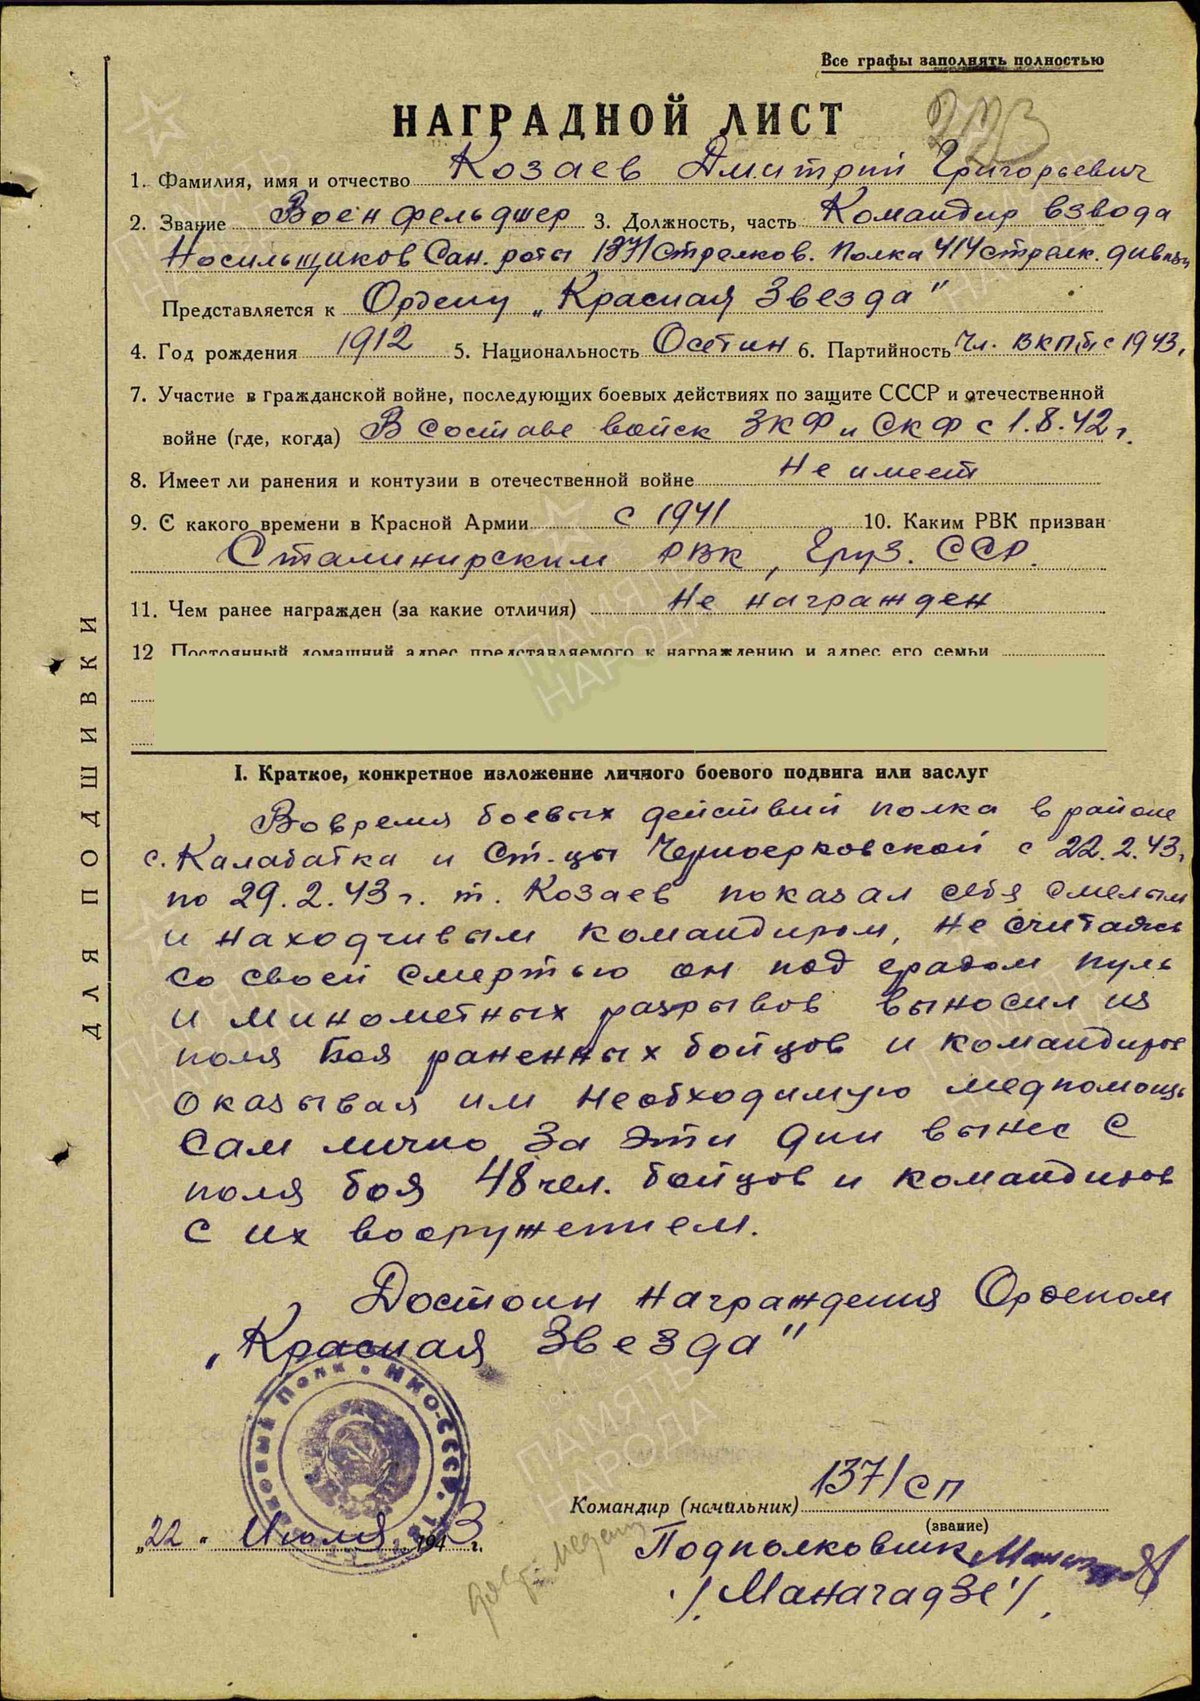 Все графы заполнять полностью
НАГРАДНОЙ ЛИСТ
1. Фамилия, имя и отчество Козаев Дмитрий Григорьевич
2. Звание Военфельдшер 3. Должность, часть Командир взвода
Носильщиков Сан. роты 1371 Стрелков. полка 414 стрелк. дивизи
Представляется к Ордену „Красная Звезда"
4. Год рождения 1912 5. Национальность Осетин 6. Партийность Чл. ВКП(б) с 1943г.
7. Участие в гражданской войне, последующих боевых действиях по защите СССР и отечественной
войне (где, когда) В составе войск ЗКФ и СКФ с 1.8.42 г.
8. Имеет ли ранения и контузии в отечественной войне Не имеет
9. С какого времени в Красной Армии с 1941 10. Каким РВК призван
Сталинирским РВК, Груз. ССР.
11. Чем ранее награжден (за какие отличия) Не награжден
12 Постоянный домашний адрес представляемого к награждению и адрес его семьи
ДЛЯ ПОДШИВКИ
I. Краткое, конкретное изложение личного боевого подвига или заслуг
Вовремя боевых действий полка в районе
с. Калабатка и Ст-цы Черноерковской с 22.2.43г.
по 29.2.43г. т. Козаев показал себя смелым
и находчивым командиром, не считаясь
со своей смертью он под градом пуль
и минометных разрывов выносил из
поля боя раненных бойцов и командиров
оказывая им необходимую медпомощь
Сам лично за эти дни вынес с
поля боя 48 чел. бойцов и командиров
с их вооружением.
Достоин награждения Орденом
„Красная Звезда"
Командир (начальник) 1371 сп
(звание)
„22" Июля 1943 г.
Подполковник
/Манагадзе/
ПАМЯТЬ
НАРОДА